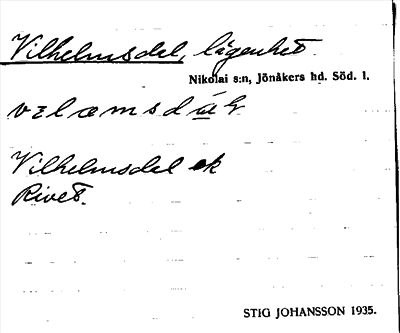 Vilhelmsdal, lägenhet
Nikolai s:n, Jönåkers hd. Söd. l.
Vilhelmsdal ek
Rivet.
STIG JOHANSSON 1935.